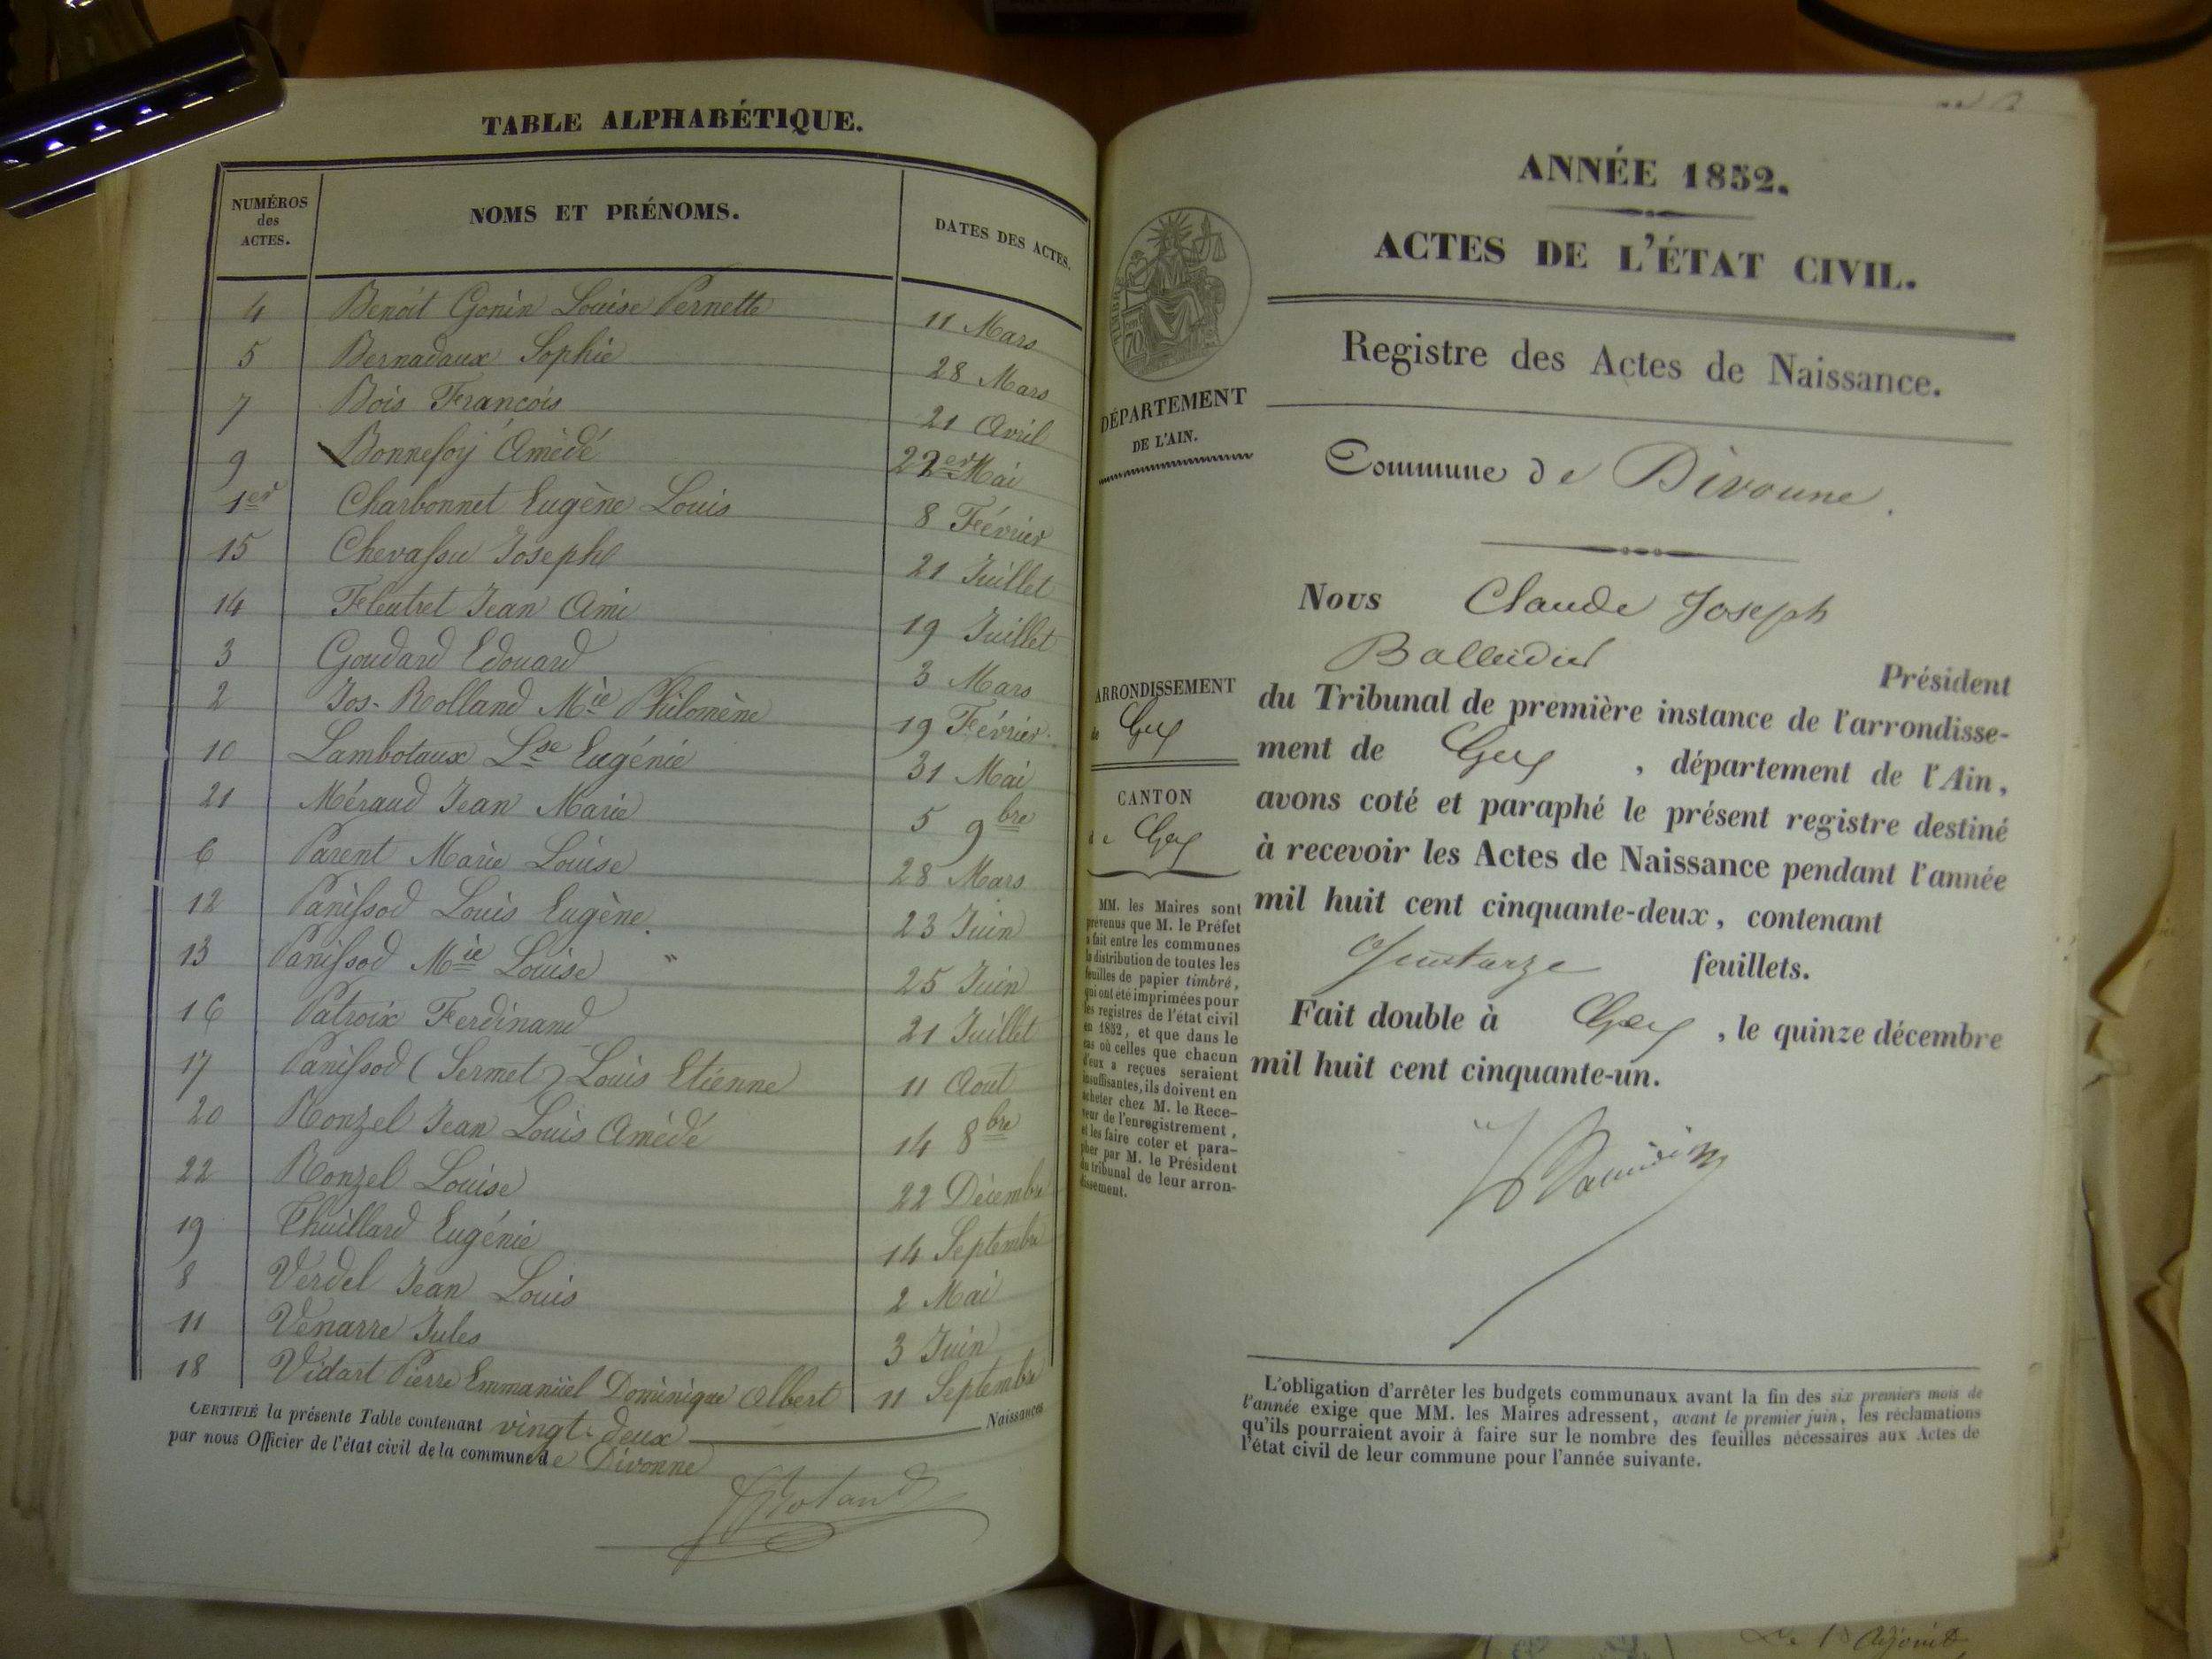 TABLE ALPHABÉTIQUE.
NUMÉROS
des
ACTES.
NOMS ET PRÉNOMS.
DATES DES ACTES.
4 Benoit Gonin Louise Pernette 11 Mars
5 Bernadaux Sophie 28 Mars
7 Bois François 21 Avril
9 Bonnefoy Amédé 22 Mai
1er Charbonnet Eugène Louis 8 Février
15 Chevassu Joseph 21 Juillet
14 Fleutret Jean Ami 19 Juillet
3 Goudard Edouard 3 Mars
2 Jos-Rolland Mie Philomène 19 Février
10 Lambotaux Lse Eugénie 31 Mai
21 Méraud Jean Marie 5 9bre
6 Parent Marie Louise 28 Mars
12 Panissod Louis Eugène. 23 Juin
13 Panissod Mie Louise " 25 Juin
16 Patroix Ferdinand 21 Juillet
17 Panissod (Sermet) Louis Etienne 11 Aout
20 Ronzel Jean Louis Amédé 14 8bre
22 Ronzel Louise 22 Décembre
19 Thuillard Eugénie 14 Septembre
8 Verdel Jean Louis 2 Mai
11 Vénarre Jules 3 Juin
18 Vidart Pierre Emmanüel Dominique Albert 11 Septembre
CERTIFIÉ la présente Table contenant vingt-deux Naissances
par nous Officier de l'état civil de la commune de Divonne
ANNÉE 1852.
ACTES DE L'ÉTAT CIVIL.
Registre des Actes de Naissance.
TIMBRE
70
DÉPARTEMENT
DE L'AIN.
Commune de Divonne.
Nous Claude Joseph
Balleidier Président
du Tribunal de première instance de l'arrondisse-
ment de Gex, département de l'Ain,
avons coté et paraphé le présent registre destiné
à recevoir les Actes de Naissance pendant l'année
mil huit cent cinquante-deux, contenant
feuillets.
Fait double à Gex, le quinze décembre
mil huit cent cinquante-un.
ARRONDISSEMENT
de Gex
CANTON
de Gex
MM. les Maires sont
prévenus que M. le Préfet
a fait entre les communes
la distribution de toutes les
feuilles de papier timbré,
qui ont été imprimées pour
les registres de l'état civil
en 1852, et que dans le
cas où celles que chacun
d'eux a reçues seraient
insuffisantes, ils doivent en
acheter chez M. le Rece-
veur de l'enregistrement,
et les faire coter et para-
pher par M. le Président
du tribunal de leur arron-
dissement.
L'obligation d'arrêter les budgets communaux avant la fin des six premiers mois de
l'année exige que MM. les Maires adressent, avant le premier juin, les réclamations
qu'ils pourraient avoir à faire sur le nombre des feuilles nécessaires aux Actes de
l'état civil de leur commune pour l'année suivante.